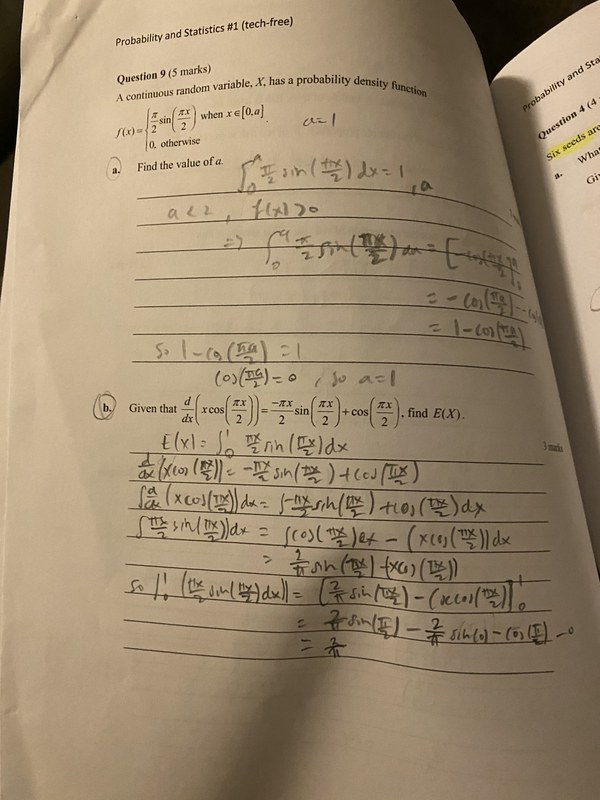 Probability and Statistics #1 (tech-free)
Question 9 (5 marks)
A continuous random variable, X, has a probability density function
f(x) = { π/2 sin(πx/2) when x∈[0,a]
0, otherwise
a=1
a. Find the value of a.
∫₀ᵃ π/2 sin(πx/2) dx = 1
a < 2, f(x) > 0
⇒ ∫₀ᵃ π/2 sin(πx/2) dx = [-cos(πx/2)]₀ᵃ
= -cos(πa/2)
= 1-cos(πa/2)
so 1-cos(πa/2) = 1
cos(πa/2) = 0, so a=1
b. Given that d/dx(x cos(πx/2)) = -πx/2 sin(πx/2) + cos(πx/2), find E(X).
3 marks
E(x) = ∫₀¹ πx/2 sin(πx/2) dx
d/dx (x cos(πx/2)) = -πx/2 sin(πx/2) + cos(πx/2)
∫ d/dx (x cos(πx/2)) dx = ∫ -πx/2 sin(πx/2) + cos(πx/2) dx
∫ πx/2 sin(πx/2) dx = ∫ cos(πx/2) dx - (x cos(πx/2)) dx
= 2/π sin(πx/2) - (x cos(πx/2))
so ∫₀¹ (πx/2 sin(πx/2) dx) = [2/π sin(πx/2) - (x cos(πx/2))]₀¹
= 2/π sin(π/2) - 2/π sin(0) - cos(π/2) - 0
= 2/π
Probability and Sta
Question 4 (4
Six seeds are
a. What
Giv